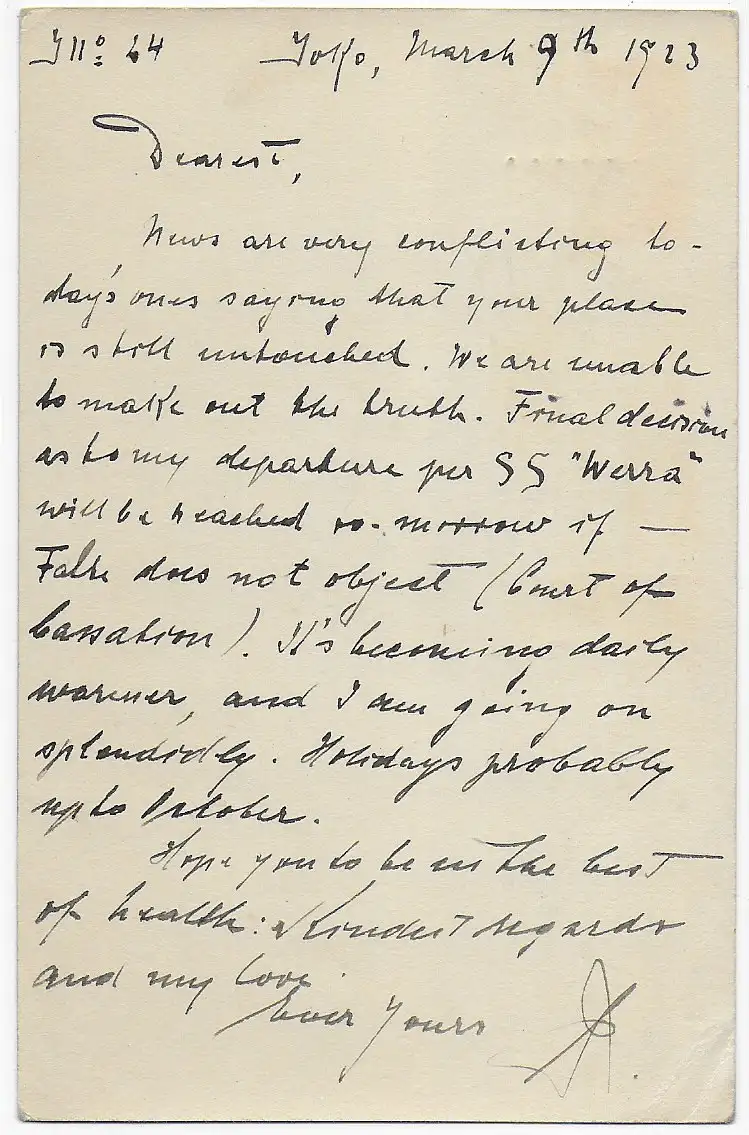 No: 24 Yoko, March 9th 1923
Dearest,
News are very conflicting to-
day's ones saying that your place
is still untouched. We are unable
to make out the truth. Final decision
as to my departure per SS "Werra"
will be reached to-morrow if —
does not object (Court of
Cassation). It's becoming daily
warmer, and I am going on
splendidly. Holidays probably
up to October.
Hope you to be in the best
of health: Kindest regards
and my love.
Ever Yours